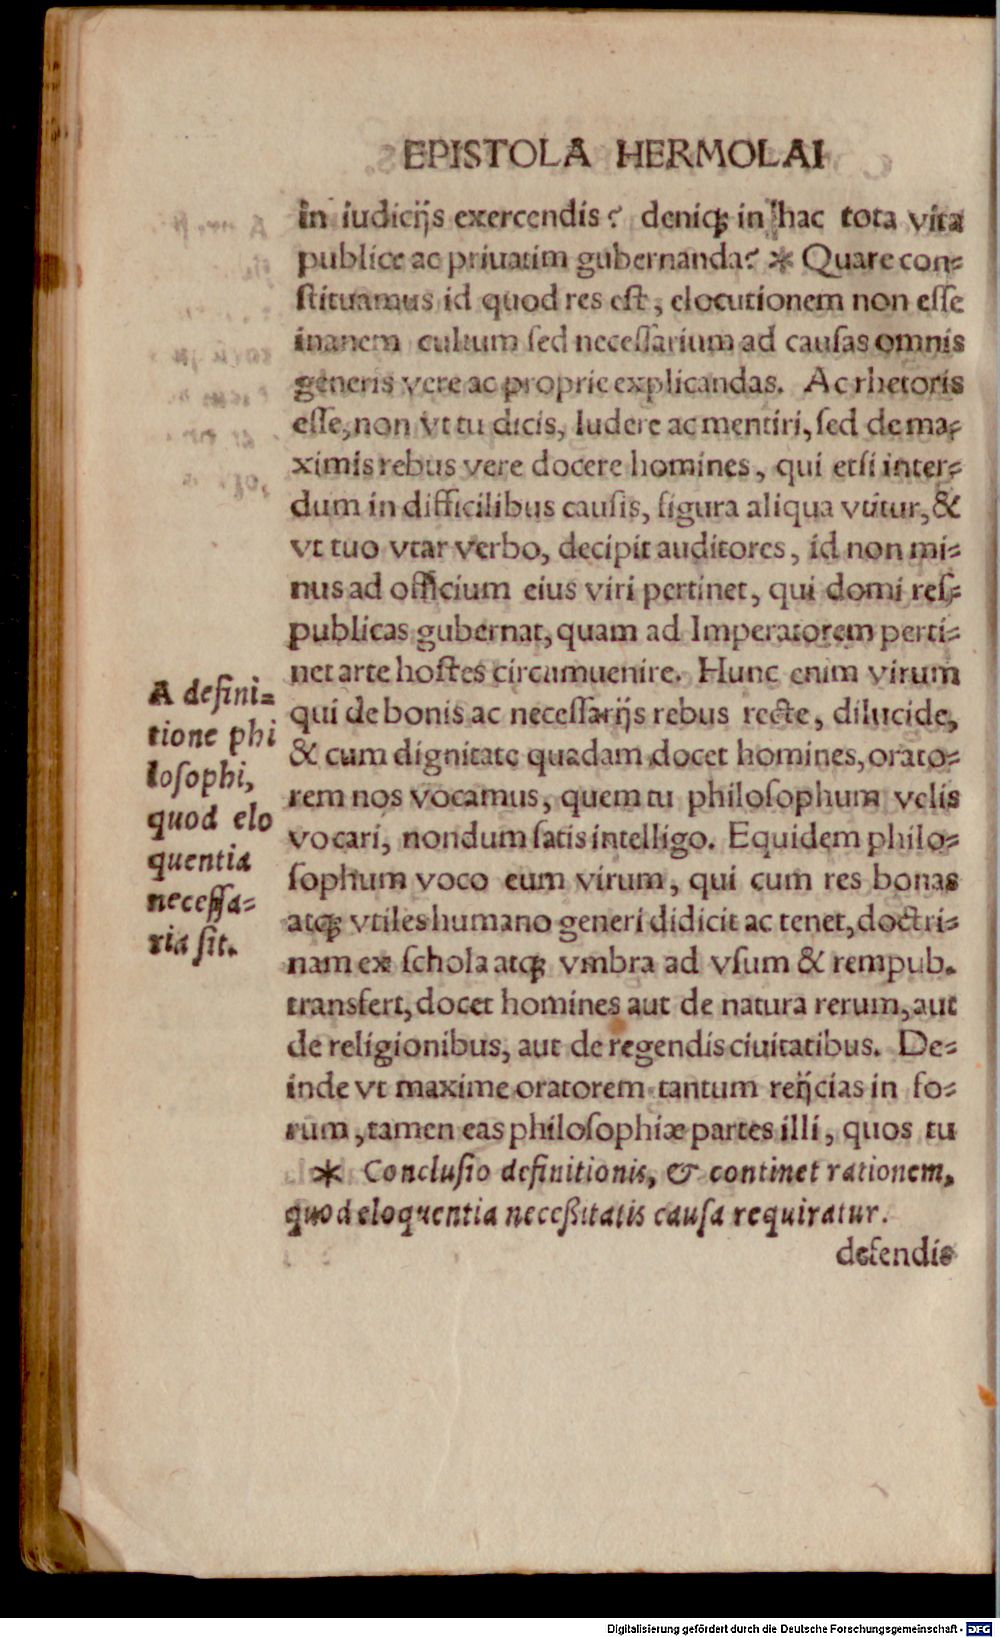 EPISTOLA HERMOLAI
in iudicijs exercendis? deniq; in hac tota vita
publice ac priuatim gubernanda? * Quare con-
stituamus id quod res est, elocutionem non esse
inanem cultum sed necessarium ad causas omnis
generis vere ac proprie explicandas. Ac rhetoris
esse, non vt tu dicis, ludere ac mentiri, sed de ma-
ximis rebus vere docere homines, qui etsi inter-
dum in difficilibus causis, figura aliqua vtitur, &
vt tuo vtar verbo, decipit auditores, id non mi-
nus ad officium eius viri pertinet, qui domi res-
publicas gubernat, quam ad Imperatorem perti-
net arte hostes circumuenire. Hunc enim virum
qui de bonis ac necessarijs rebus recte, dilucide,
& cum dignitate quadam docet homines, orato-
rem nos vocamus, quem tu philosophum velis
vocari, nondum satis intelligo. Equidem philo-
sophum voco eum virum, qui cum res bonas
atq; vtiles humano generi didicit ac tenet, doctri-
nam ex schola atq; vmbra ad vsum & rempub.
transfert, docet homines aut de natura rerum, aut
de religionibus, aut de regendis ciuitatibus. De-
inde vt maxime oratorem tantum reijcias in fo-
rum, tamen eas philosophiæ partes illi, quos tu
A defini-
tione phi
losophi,
quod elo
quentia
necessa-
ria sit.
* Conclusio definitionis, & continet rationem,
quod eloquentia necessitatis causa requiratur.
defendis
Digitalisierung gefördert durch die Deutsche Forschungsgemeinschaft - DFG